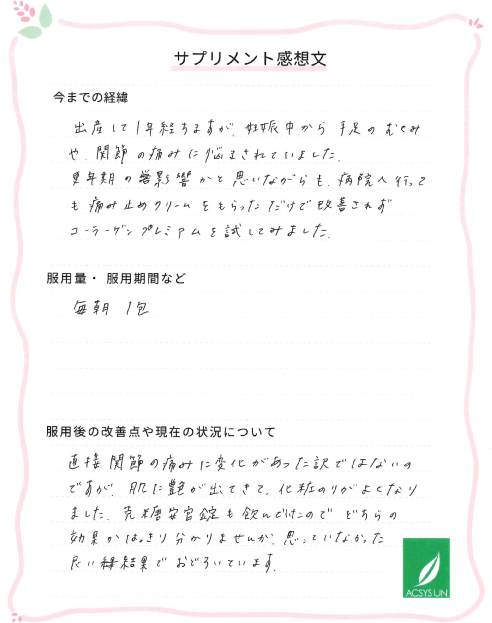 サプリメント感想文
今までの経緯
出産して1年経ちますが、妊娠中から 手足の むくみ
や、関節の痛みに悩まされていました。
更年期の営影響かと思いながらも、病院へ行って
も 痛み止めクリームをもらっただけで改善されず
コーラーゲンプレミアムを試してみました。
服用量・ 服用期間など
毎朝 1包
服用後の改善点や現在の状況について
直接 関節の痛みに変化があった訳ではないの
ですが、肌に艶が出てきて、化粧のりがよくなり
ました。糖安宮錠も飲んでいたので どちらの
効果かはっきり分かりませんが、思っていなかった
良い結果で おどろいています。
ACSYS UN